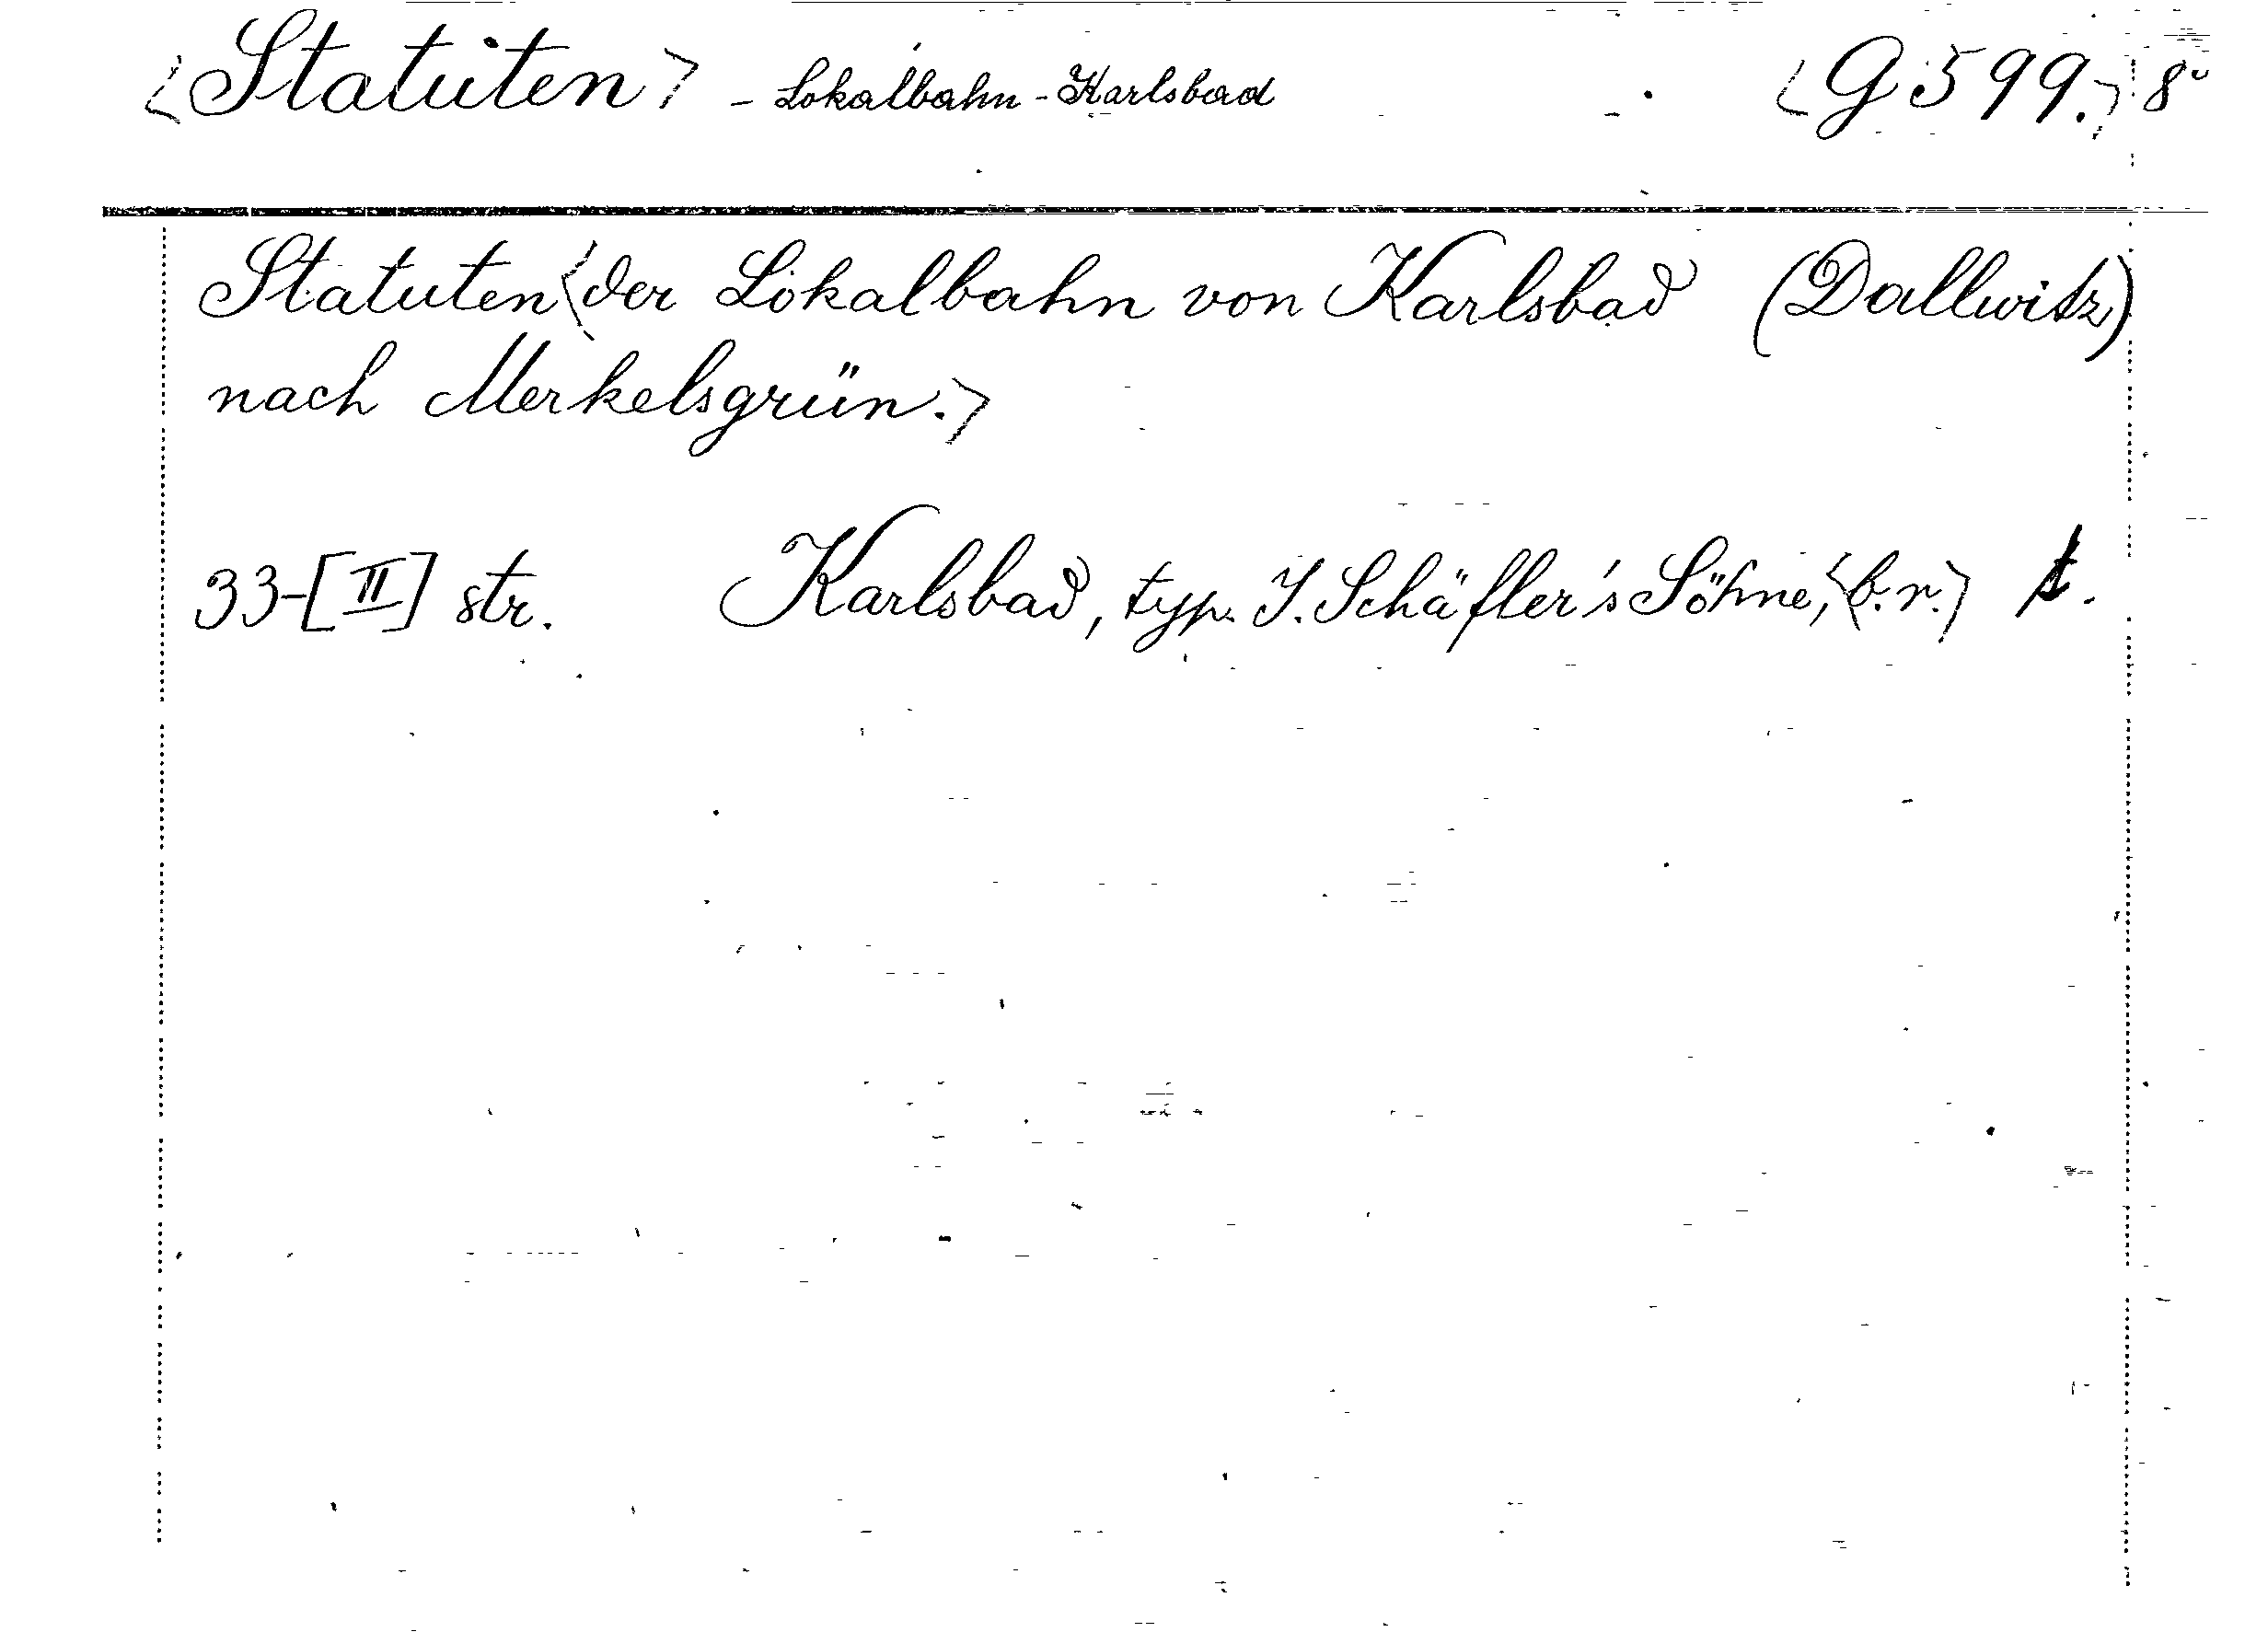 <Statuten> - Lokalbahn - Karlsbad <G 599.> 8°
Statuten <der Lokalbahn von Karlsbad (Dallwitz)
nach Merkelsgrün.>
33-[II] str. Karlsbad, typ. J. Schäfler's Söhne, <b.r.> t.